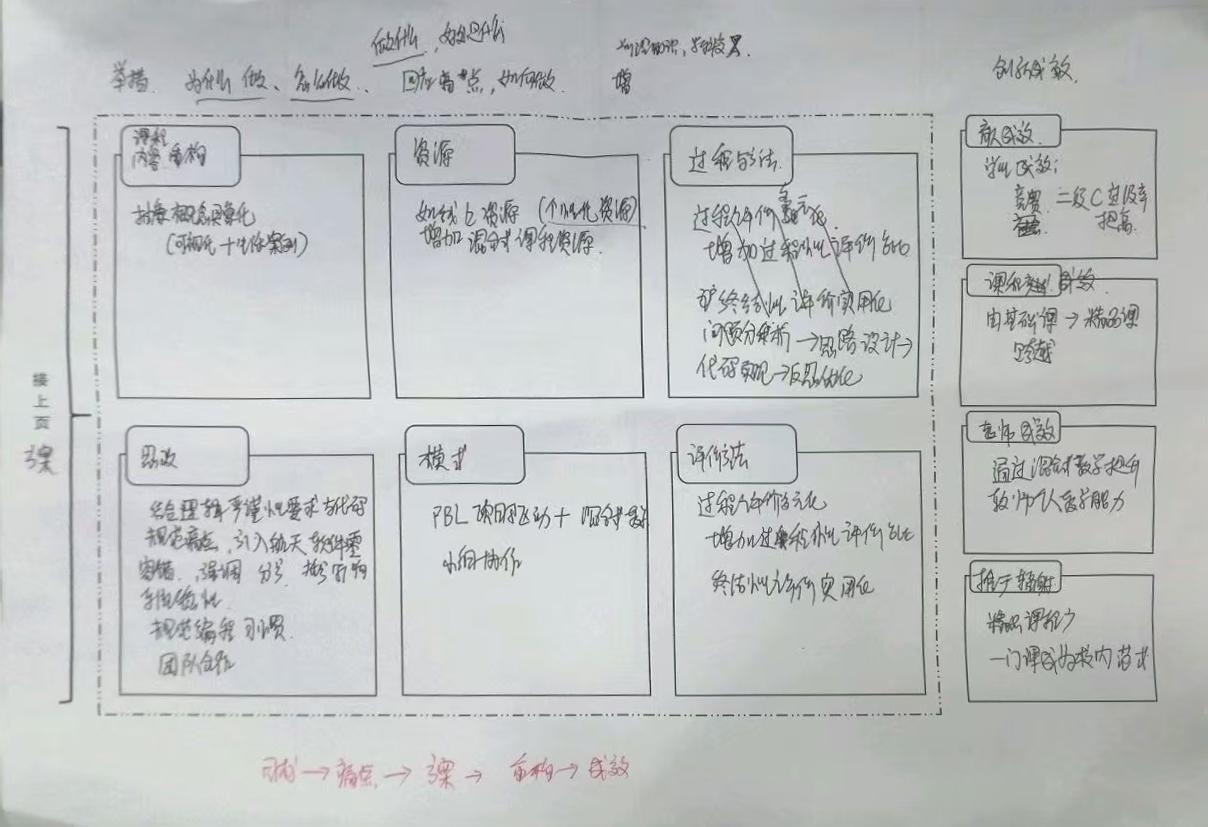 做什么,
举措 为什么做、怎么做、 回应痛点,如何做
增
创新成效
课程
内容重构
抽象概念具象化
(可视化+生活案例)
资源
如线上资源 (个性化资源)
增加混合式课程资源
过程与方法
过程评价多元化
增加过程性评价占比
终结性评价实用化
问题分析→思路设计→
代码实现→反思优化
接上页
思政
结合逻辑严谨性要求与代码
规范痛点,引入航天软件
容错,强调分号、括号的
规范编程习惯
团队合作
模式
PBL项目驱动+混合式教学
小组协作
评价方法
过程评价多元化
增加过程性评价占比
终结性评价实用化
成效
学生成效:
竞赛 二级C空级率
提高
课程 成效
由基础课→精品课
跨越
老师成效
通过混合式教学提升
教师个人教学能力
推广辐射
精品课程
一门课成为校内
痛点→ → 重构→成效